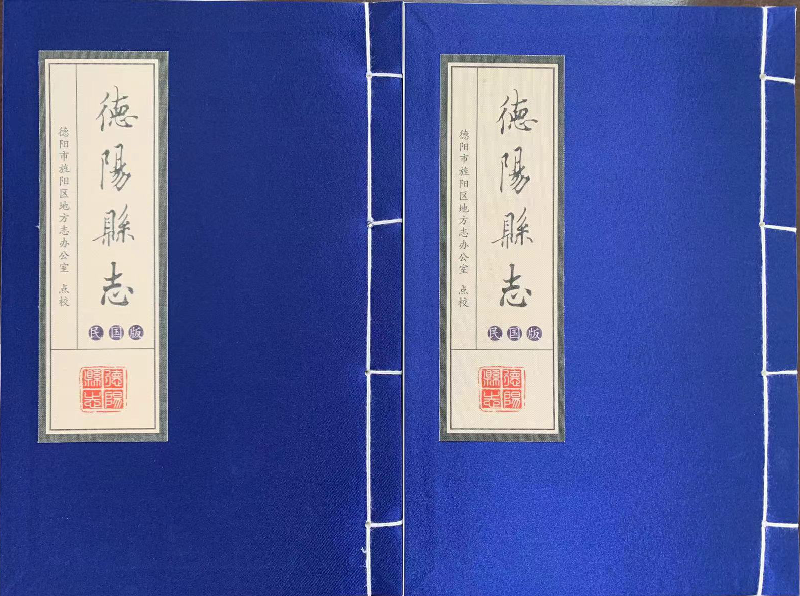 德陽縣志
民国版
德阳市旌阳区地方志办公室 点校
德陽
縣志
德陽縣志
民国版
德阳市旌阳区地方志办公室 点校
德陽
縣志